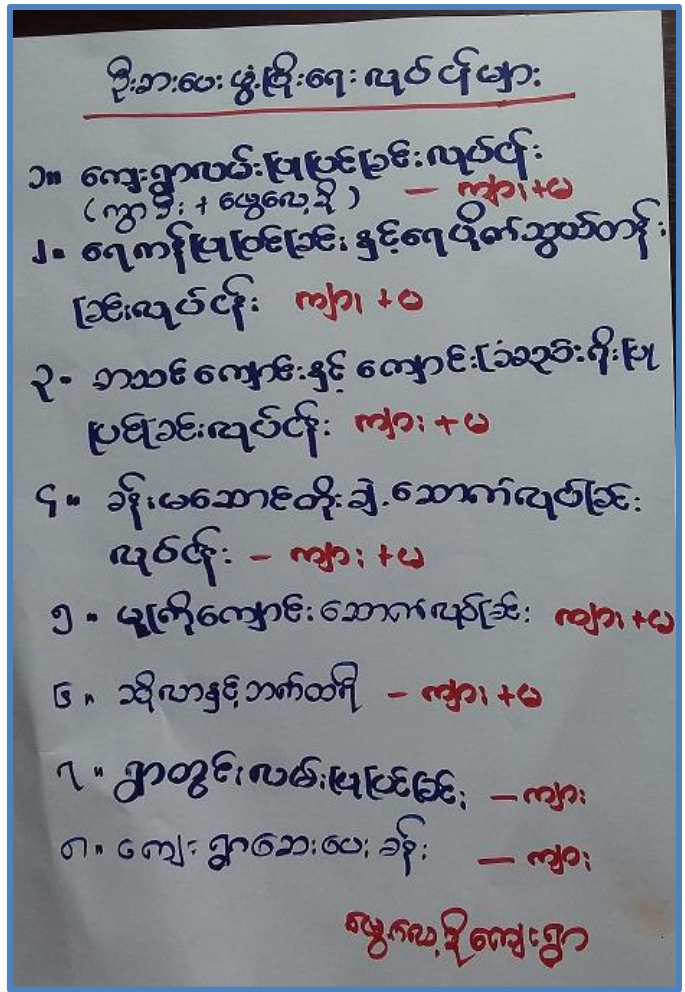 ဦးစားပေး ဖွံ့ဖြိုးရေး လုပ်ငန်းများ
၁။ ကျေးရွာလမ်းပြုပြင်ခြင်းလုပ်ငန်း
- ကျား+မ
၂။ ရေကန်ပြုပြင်ခြင်း နှင့်ရေပိုက်သွယ်တန်း
ခြင်းလုပ်ငန်း ကျား +မ
၃။ စာသင်ကျောင်းနှင့် ကျောင်းခြံစည်းရိုးပြု
ပြင်ခြင်းလုပ်ငန်း ကျား + မ
၄။ ခန်းမဆောင်တိုးချဲ့ဆောက်လုပ်ခြင်း
လုပ်ငန်း - ကျား +မ
၅။ မူကြိုကျောင်းဆောက်လုပ်ခြင်း ကျား +မ
၆။ ဆိုလာနှင့်ဘက်ထရီ - ကျား +မ
၇။ ရွာတွင်းလမ်းပြုပြင်ခြင်း - ကျား
၈။ ကျေးရွာဆေးပေးခန်း - ကျား
ကျေးရွာ